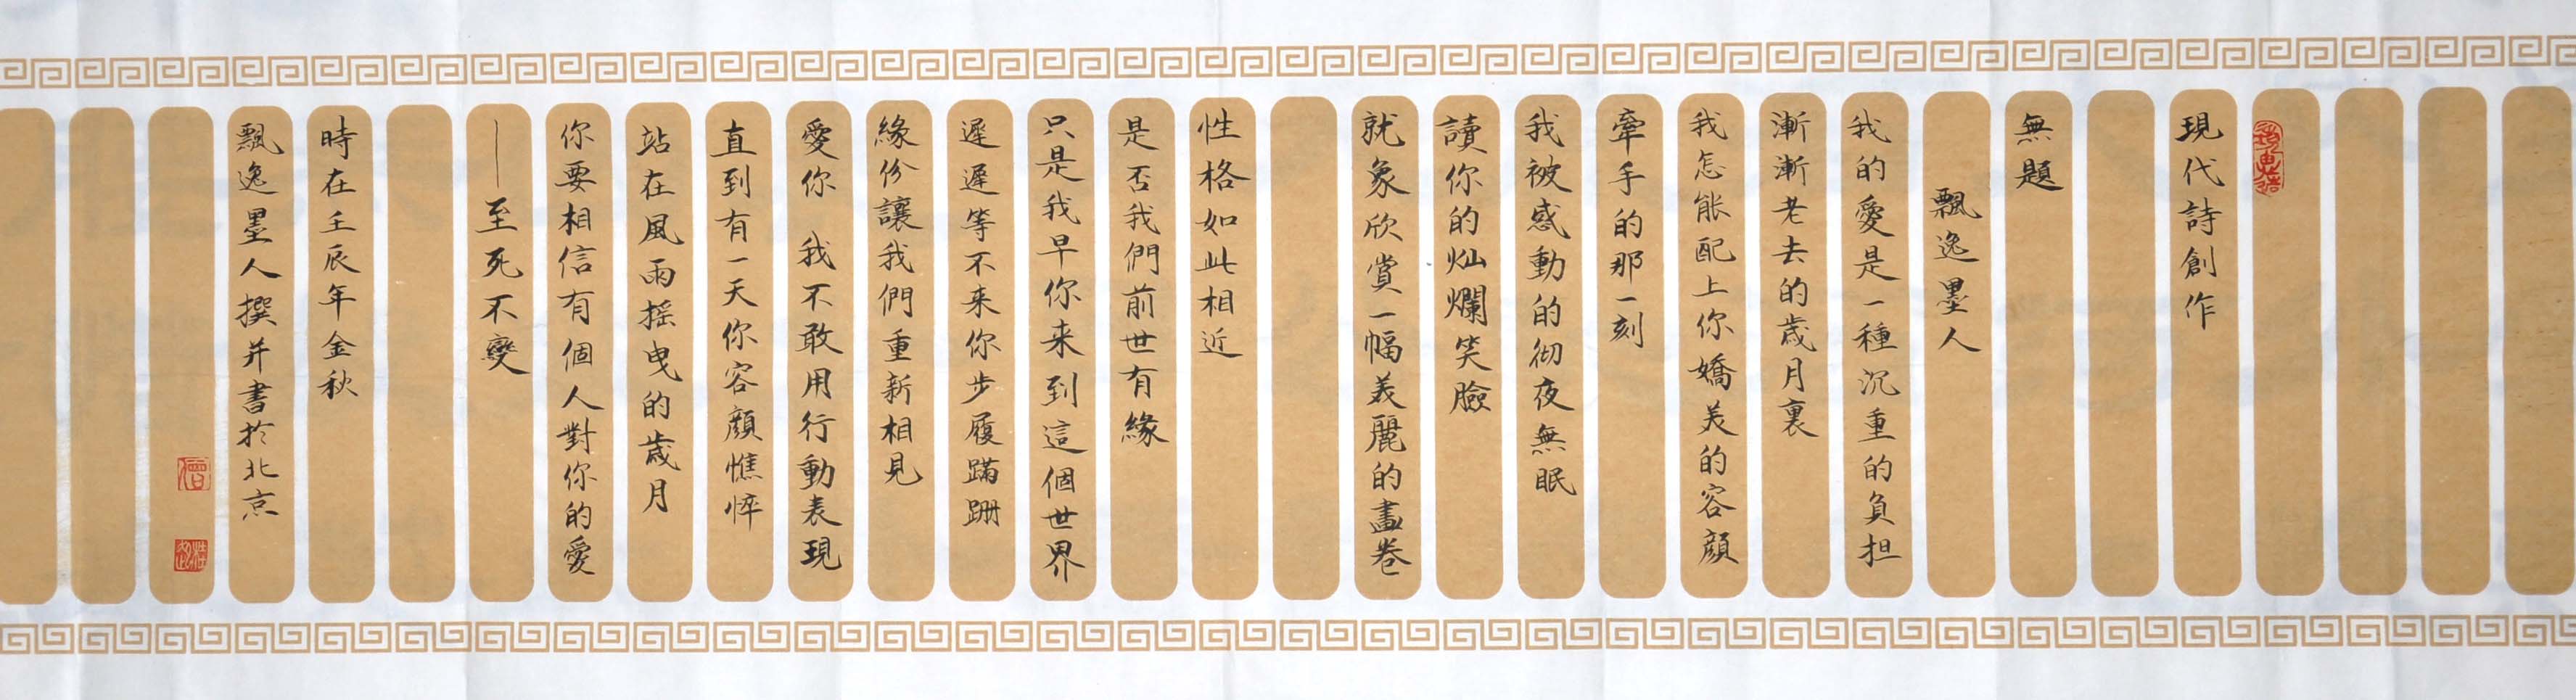 現代詩創作
無題
飄逸墨人
我的愛是一種沉重的負担
漸漸老去的歲月裏
我怎能配上你嬌美的容顔
牽手的那一刻
我被感動的彻夜無眠
讀你的灿爛笑臉
就象欣賞一幅美麗的畫卷
性格如此相近
是否我們前世有緣
只是我早你来到這個世界
遲遲等不来你步履蹒跚
緣份讓我們重新相見
愛你 我不敢用行動表現
直到有一天你容顔憔悴
站在風雨摇曳的歲月
你要相信有個人對你的愛
——至死不變
時在壬辰年金秋
飄逸墨人撰并書於北京